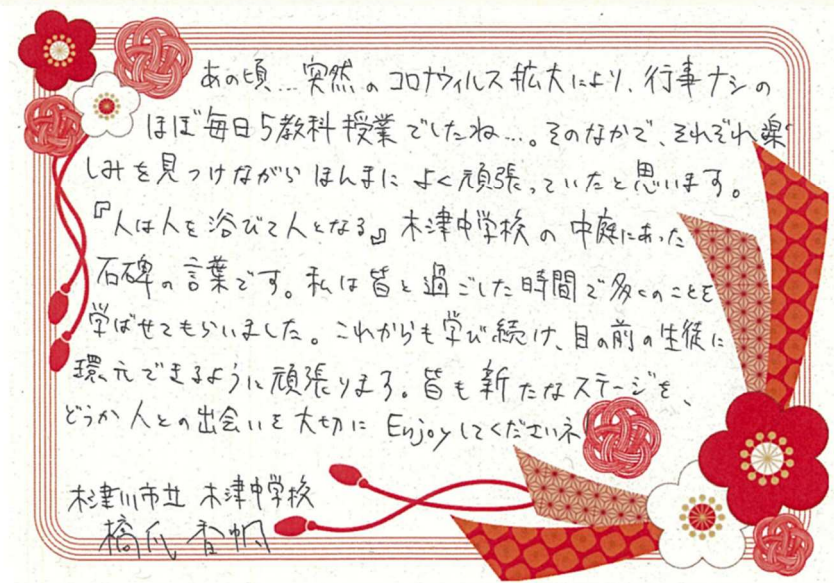 あの頃…突然のコロナウィルス拡大により、行事ナシの
ほぼ毎日5教科授業でしたね…。そのなかで、それぞれ楽
しみを見つけながらほんまによく頑張っていたと思います。
『人は人を浴びて人となる』木津中学校の中庭にあった
石碑の言葉です。私は皆と過ごした時間で多くのことを
学ばせてもらいました。これからも学び続け、目の前の生徒に
環元できるように頑張ります。皆も新たなステージを、
どうか人との出会いを大切にEnjoyしてくださいネ
木津川市立 木津中学校
橋爪香帆